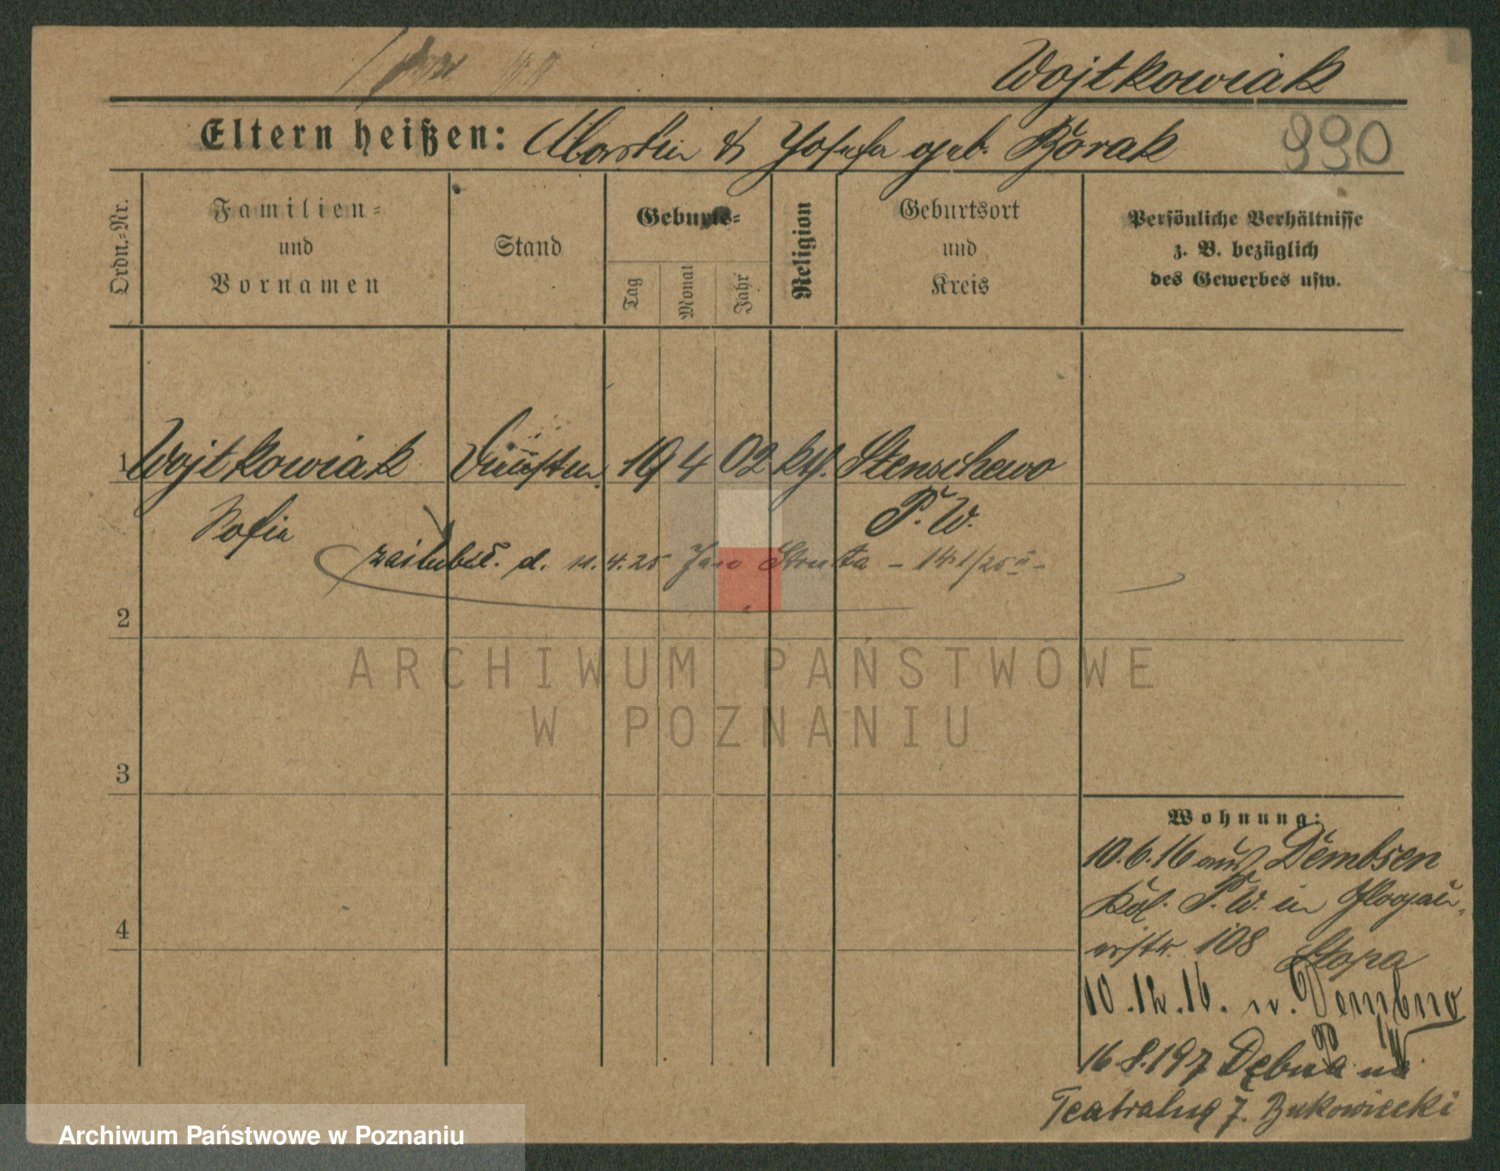 Wojtkowiak
Eltern heißen: Martin & Josefa geb. Borak
990
Ordn.-Nr.
Familien-
und
Vornamen
Stand
Geburts-
Tag
Monat
Jahr
Religion
Geburtsort
und
Kreis
Persönliche Verhältnisse
z. B. bezüglich
des Gewerbes usw.
1 Wojtkowiak 4 02 kth. Stenschewo
Sofie P. W.
zaślubił. d. 11.4.25 Jan
2
ARCHIWUM PAŃSTWOWE
W POZNANIU
3
Wohnung:
10.6.16 aus Dembsen
P. W. in Glogau-
erstr. 108 Stopa
4
10.12.16. n. Dembno
P. W.
16.8.197 Dębna na
Teatralną 7. Bukowiecki
Archiwum Państwowe w Poznaniu